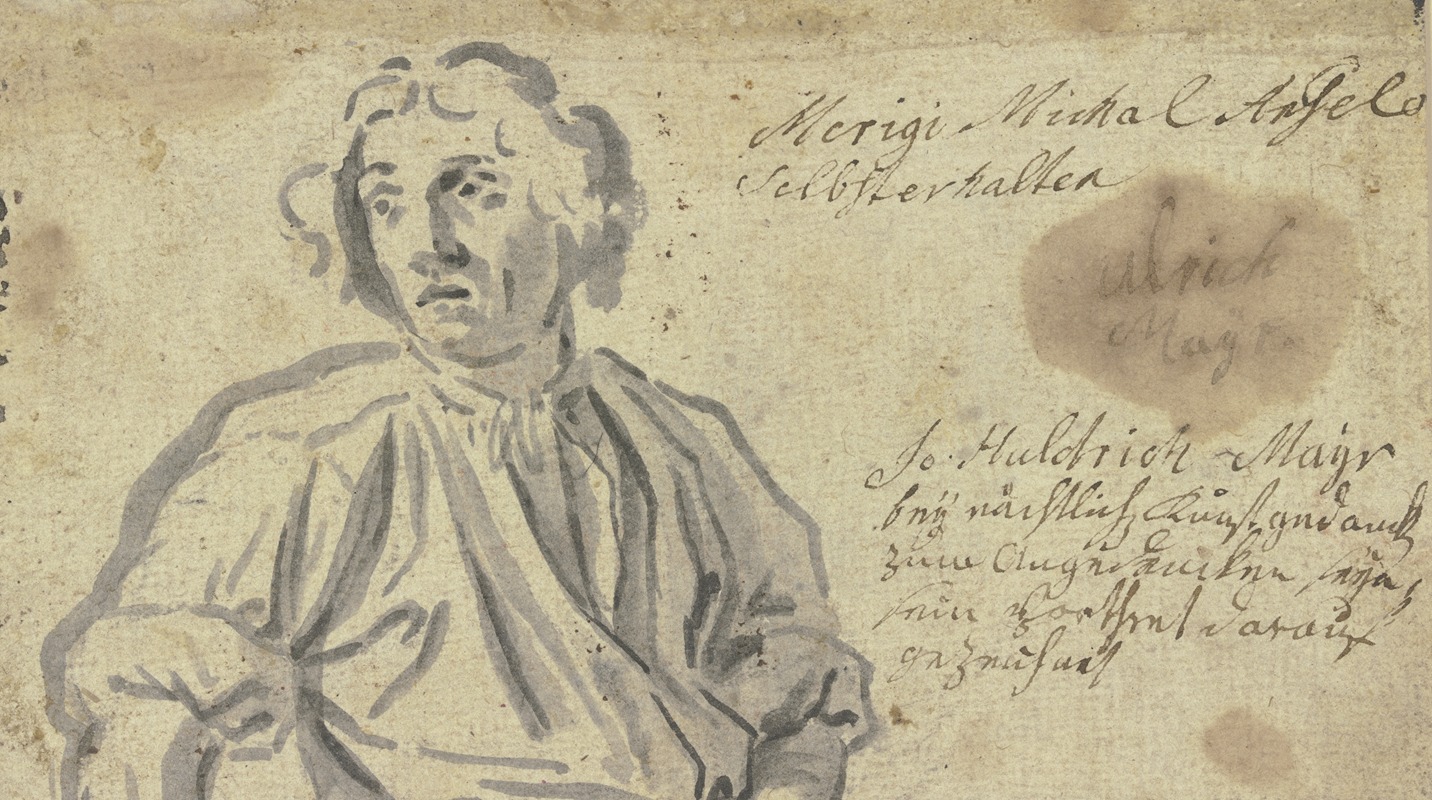 Merigi Michal Angelo
Selbsterhalten
Ulrich
Mayr.
Jo. Huldrich Mayr
beÿ nächtlich Kunstgedanck
zum Angedencken seÿn,
sein Porthret darauf
gezeichnet